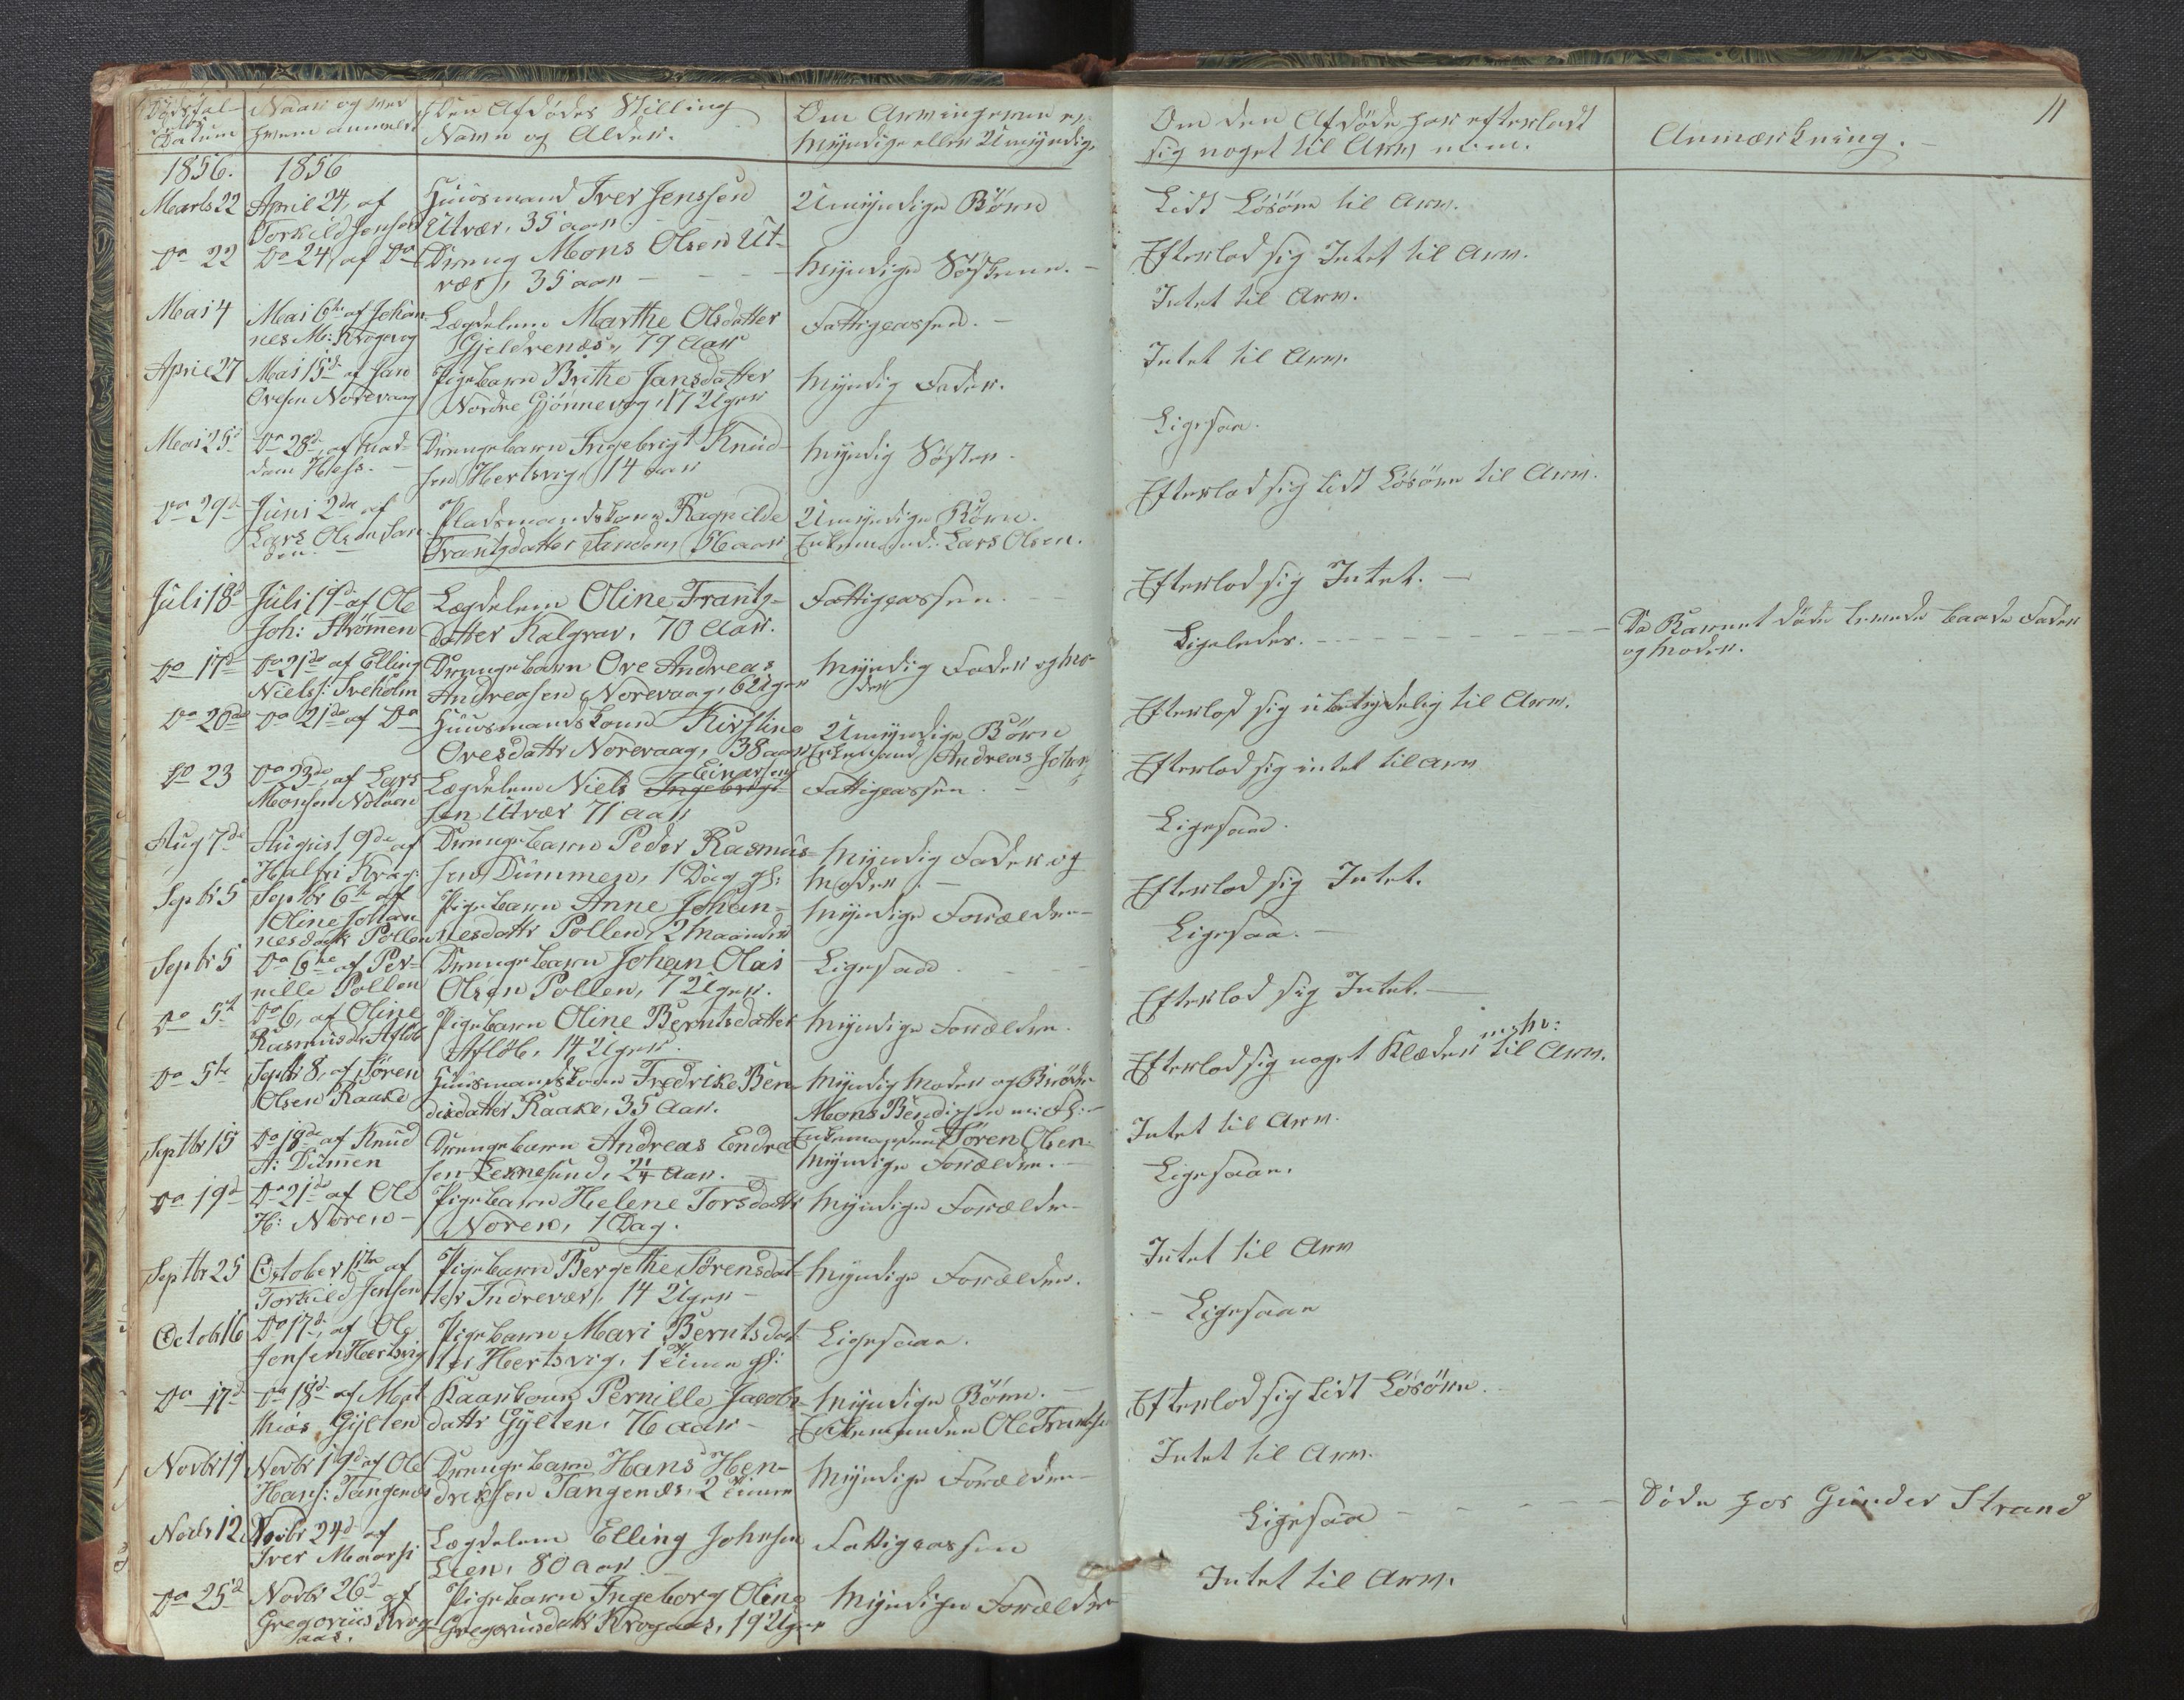 Dødsfal-
dets
Datum
Naar og ver
hvem anmeldt
Den Afdødes Stilling
Navn og Alder.
Om Arvingerne er
Myndige eller Umyndige
Om den Afdøde har efterladt
sig noget til Arv m.m.
Anmærkning.
11
1856.
1856
Marts 22
April 24, af
Torkild Jensen
Huusmand Iver Jenssen
Utvær, 35 aar
Umyndige Börn
Lidt Lösöre til Arv.
Do 22
Do 24, af Do
Dreng Mons Olsen Ut-
vær, 35 aar
Myndige Södskene.
Efterlod sig Intet til Arv.
Mai 4
Mai 6te af Johan-
nes M: Krogevog
Lægdelem Marthe Olsdatter
Gjeldrenæs, 79 Aar
Fattigcassen.
Intet til Arv.
April 27
Mai 15d af Jan
Ovesen Norevaag
Pigebarn Brithe Jansdatter
Nordre Gjönnevog, 17 Uger
Myndig Fader.
Intet til Arv.
Mai 25
Do 28d, af Mad-
dam Hess.
Drengebarn Ingebrigt Knud-
sen Hertsvig, 14 aar
Myndig Söster.
Ligesaa.
Do 29d
Juni 2den af
Lars Olsen San-
den.
Pladsmandskone Ragnilde
Frantzdatter Sanden, 56 aar
Umyndige Börn.
Enkemand: Lars Olsen.
Efterlod sig lidt Lösöre til Arv.
Juli 18d
Juli 19d af Ole
Joh: Strömmen
Lægdelem Oline Frantz-
datter Kalgrav, 70 Aar.
Fattigcassen.
Efterlod sig Intet.
Do 17d
Do 21de af Elling
Niels: Treholm
Drengebarn Ove Andreas
Andreasen Norevaag, 6 Uger
Myndig Fader og Mo-
der
Ligeledes.
Da Barnet döde levede baade Fader
og Moder.
Do 20de
Do 21de af Do
Huusmandskone Kirstine
Ovesdattr Norevaag, 38 aar
Umyndige Börn
Enkemand Andreas Johns
Efterlod sig ubetydelig til Arv.
Do 23
Do 23de af Lars
Monsen Nolöen
Einarsen
Lægdelem Niels Ingebrigt-
sen Utvær 71 aar
Fattigcassen.
Efterlod sig intet til arv
Aug 7de
August 9de af
Halfri Krag:
Drengebarn Peder Rasmus-
sen Dummen, 1 Dag gl:
Myndig Fader og
Moder.
Ligesaa.
Septr 5
Septbr 6te af
Oline Johan
nesdattr Pollen
Pigebarn Anne Johan-
nesdattr Pollen, 2 Maaneder
Myndige Forældre
Efterlod sig Intet.
Septr 5
Do 6te af Per-
nelle Pollen
Drengebarn Johan Olai
Olsen Pollen, 7 Uger.
Ligesaa
Ligesaa.
Do 5te
Do 6, af Oline
Rasmusdr Aflöb
Pigebarn Oline Berntsdatter
Aflöb, 14 Uger.
Myndige Forældre.
Efterlod sig Intet.
Do 5te
Septbr 8, af Sören
Olsen Kaake
Huusmandskone Fredrike Ben-
dixdatter Raake, 35 Aar.
Myndig Moder og Brödre
Mons Bendixen m: Fl:
Enkemanden Sören Olsen
Efterlod sig noget Klæder m. v: til Arv.
Septbr 15
Do 18de af Knud
A: Dummen
Drengebarn Andreas Endre-
sen Leknesund, 2 1/4 Aar.
Myndige Forældre.
Intet til Arv.
Do 19d
Do 21de af Ole
H: Noren
Pigebarn Helene Torsdattr
Noren, 1 Dag.
Myndige Forældre
Ligesaa.
Septbr 25
October 1ste af
Torkild Jensen
Pigebarn Bergethe Sörensdat-
ter Indrevær, 14 Uger
Myndige Forældre.
Intet til Arv
Octob 16
Do 17d, af Ole
Jensen Hertsvig
Pigebarn Mari Berntsdat-
ter Hertsvig, 1 Time gl:
Ligesaa.
Ligesaa
Do 17d
Do 18d af Mat
thias Gylten
Kaarkone Pernille Jacobs-
dattr Gylten, 76 aar
Myndige Börn.
Enkemanden Ole Frantsen
Efterlod sig lidt Lösöre.
Novbr 19
Novbr 19d af Ole
Hans: Tangenæs
Drengebarn Hans Hen-
driksen Tangenæs, 2 Timer
Myndige Forældre
Intet til Arv.
Novbr 12
Novbr 24d af
Iver Maarsi
Lægdelem Elling Johnsen
Lien, 80 aar
Fattigcassen
Ligesaa
Döde hos Gunder Strand
Do 25d
Novbr 26d af
Gregorius Krog
aas.
Pigebarn Ingeborg Oline
Gregoriusdatr Krogaas, 19 Uger
Myndige Forældre
Intet til Arv.